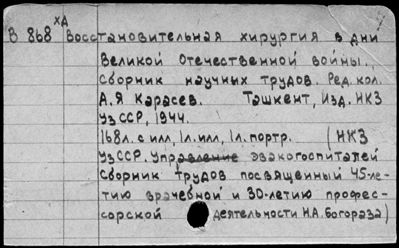 ХД
В 868 Восстановительная хирургия в дни
Великой Отечественной войны.,
Сборник научных трудов. Ред. кол.
А.Я Карасев. Ташкент, Изд. НКЗ
УзССР, 1944.
168л. с илл, 1л. илл, 1л. портр. (НКЗ
УзССР. Управление эвакогоспиталей
Сборник трудов посвященный 45-ле-
тию врачебной и 30-летию профес-
сорской деятельности Н.А. Богораза)